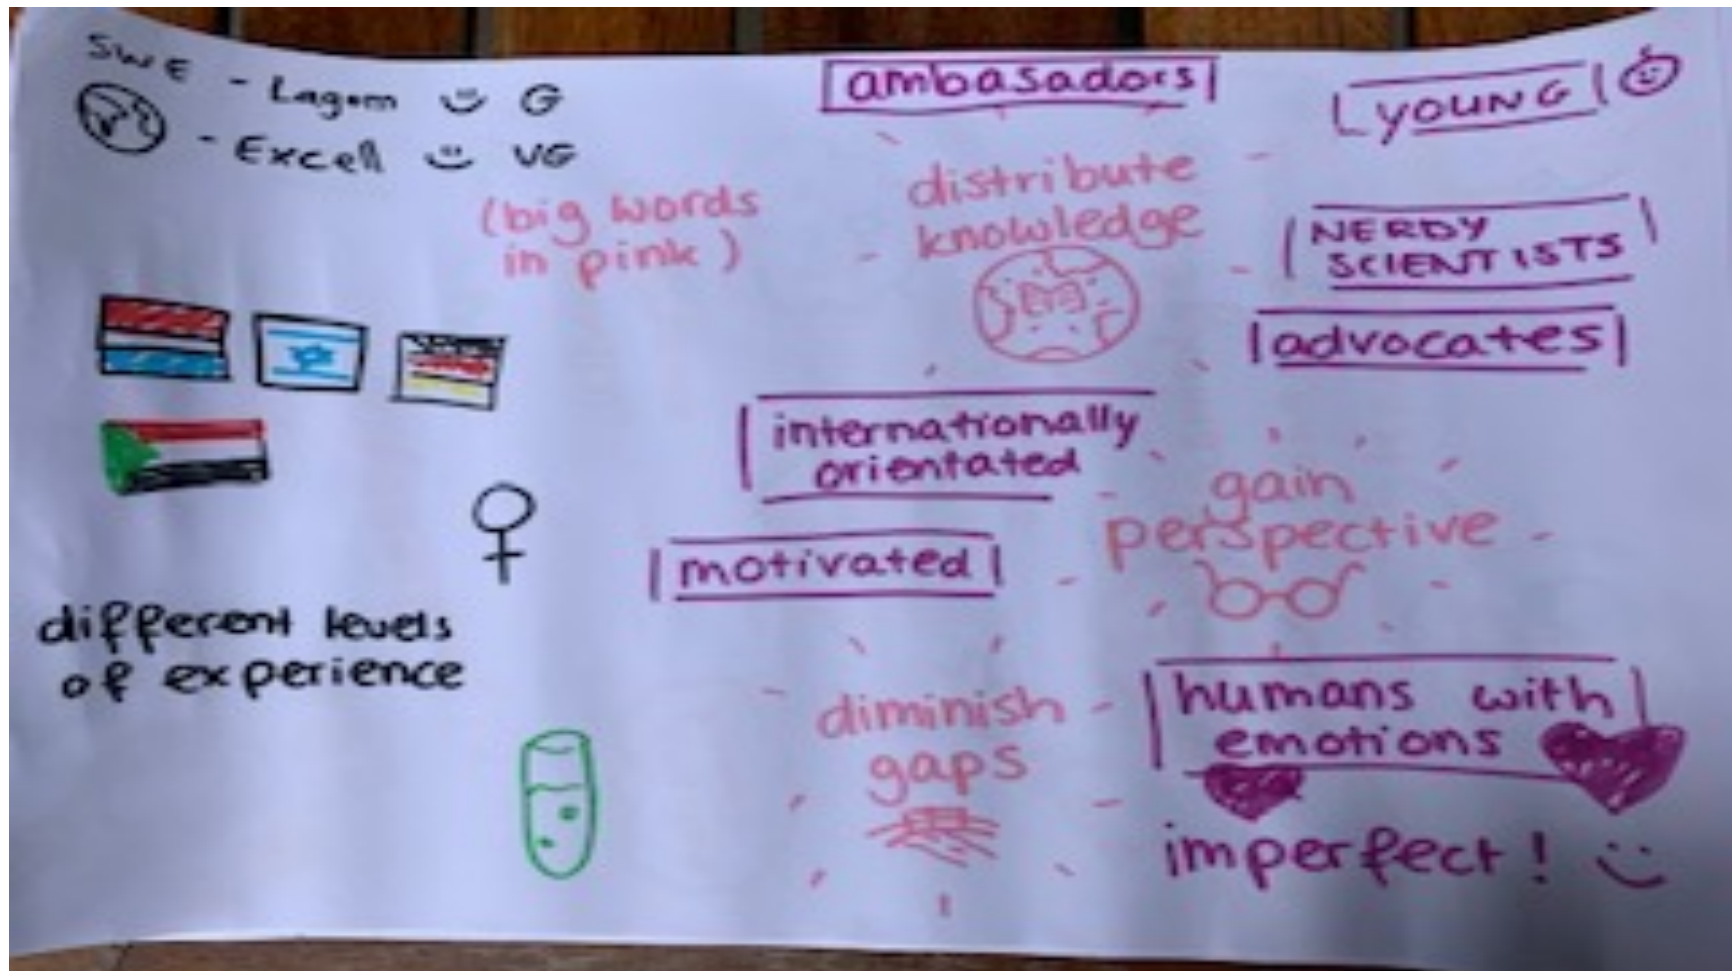 SWE - Lagom G
- Excell VG
(big words
in pink)
different levels
of experience
ambasadors
distribute
knowledge
YOUNG
NERDY
SCIENTISTS
advocates
internationally
orientated
motivated
gain
perspective
diminish
gaps
humans with
emotions
imperfect!